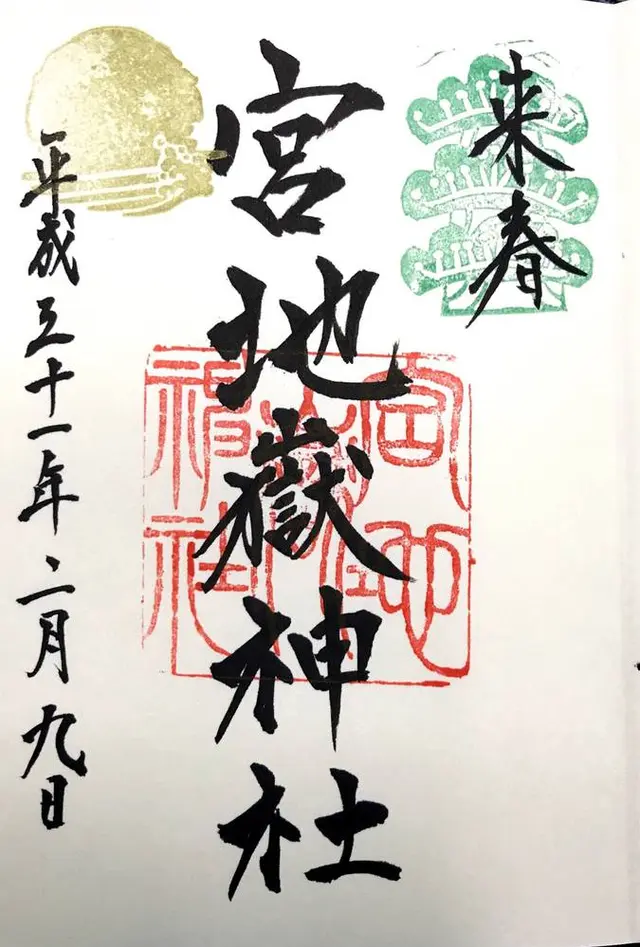 来春
宮地嶽神社
宮地嶽神社
平成三十一年二月九日